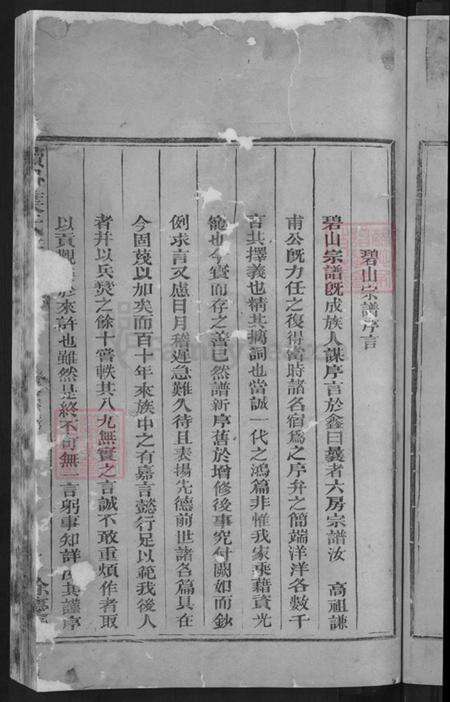 碧山宗譜序言
碧山宗譜既成族人謀序言於鑫曰曩者六房宗譜汝 高祖謙
甫公既力任之復得當時諸名宿爲之序弁之簡端洋洋各數千
言其擇義也精其摛詞也當誠一代之鴻篇非惟我家乘藉資光
寵也今實而存之善已然譜新序舊於增修後事究付闕如而鈔
例求言又慮日月稽遲急難久待且表揚先德前世諸名篇具在
今固蔑以加矣而百十年來族中之有嘉言懿行足以範我後人
者并以兵燹之餘十嘗軼其八九無實之言誠不敢重煩作者取
以貢觀 於來許也雖然是終不可無一言躬事知詳 其謹序